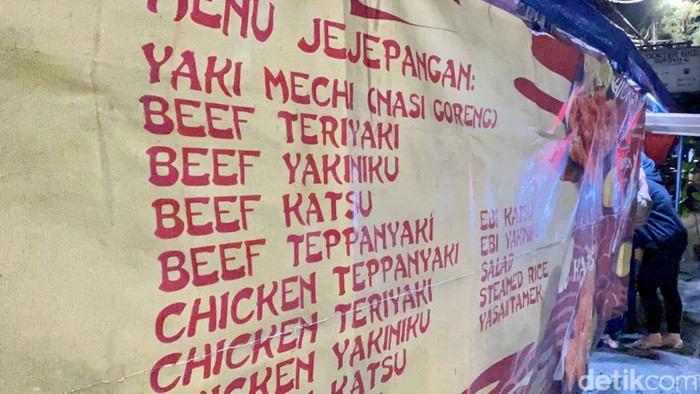 MENU JEJEPANGAN:
YAKI MECHI (NASI GORENG)
BEEF TERIYAKI
BEEF YAKINIKU
BEEF KATSU
BEEF TEPPANYAKI
CHICKEN TEPPANYAKI
CHICKEN TERIYAKI
CHICKEN YAKINIKU
KATSU
EBI KATSU
EBI YAKINIKU
SALAD
STEAMED RICE
YASAIITAMEK
detikcom